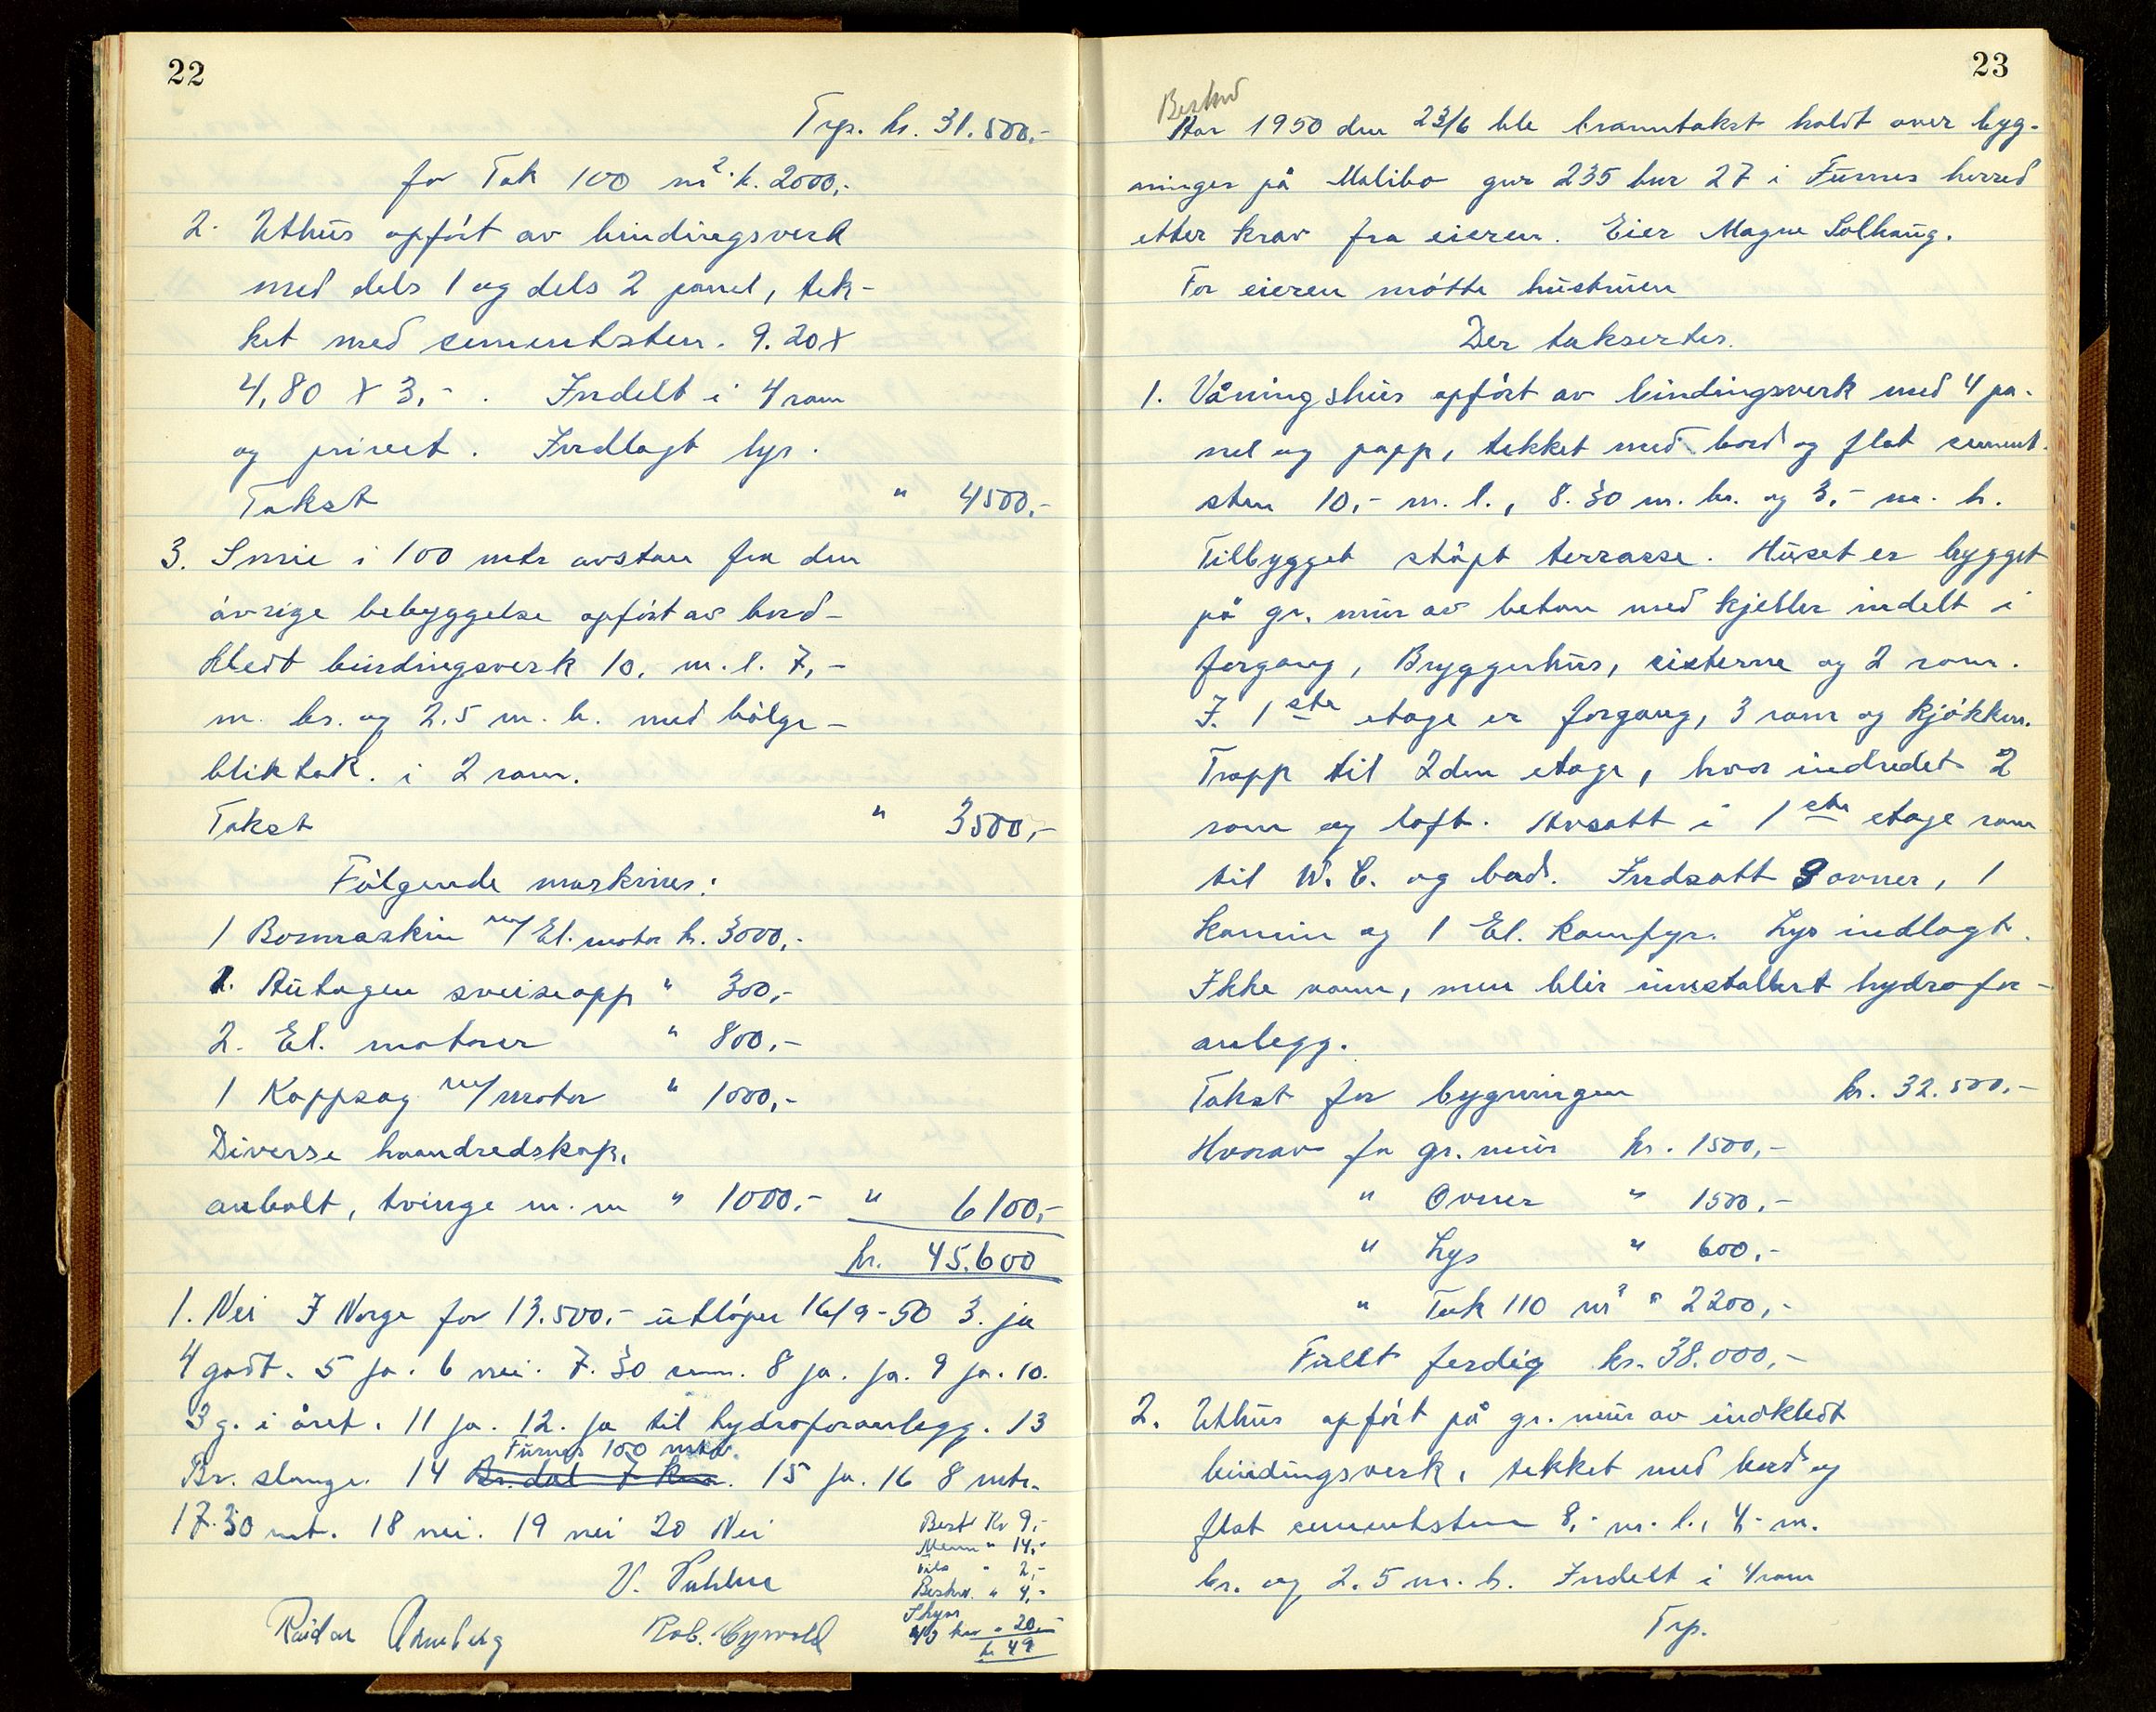 22
Trp. kr. 31.500.-
for Tak 100 m². k. 2000,-
2. Uthus opført av bindingsverk
med dels 1 og dels 2 panel, tek-
ket med sementsten. 9.20 x
4,80 x 3,- . Inndelt i 4 rom
og privet. Inndlagt lys.
Takst " 4500,-
3. Smie i 100 mtr avstan fra den
øvrige bebyggelse opført av bord-
kledt bindingsverk 10. m. l. 7,-
m. br. og 2.5 m. h. med bølge-
bliktak. i 2 rom.
Takst " 3500,-
Følgende maskiner:
1 Bormaskin m/ El. motor kr. 3000,-
1. Autogen sveiseapp " 300,-
2. El. motorer " 800,-
1 Kappsag m/motor " 1000,-
Diverse haandredskap,
anbolt, tvinge m. m " 1000.- " 6100,-
kr. 45.600
1. Nei I Norge for 13.500.- utløper 16/9-50 3. ja
4 godt. 5 ja. 6 nei. 7. 30 cm. 8 ja. ja. 9 ja. 10.
3 g. i året. 11 ja. 12. ja til hydroforanlegg. 13
Furnes 100 mtr.
Br. slange. 14 Br.dal 7 km. 15 ja. 16 8 mtr.
17. 30 mt. 18 nei. 19 nei 20 Nei
Best Kr 9,-
Menn " 14,-
" 2,-
Bestur. " 4,-
V.
Skyss
" 20,-
kr 49
Reidar Arneberg Rob.
23
Besknd
Aar 1950 den 23/6 ble branntakst holdt over byg-
ninger på Malibo gnr 235 bnr 27 i Furnes herred
etter krav fra eieren. Eier Magne Solhaug.
For eieren møtte hustruen
Der taksertes.
1. Våningshus opført av bindingsverk med 4 pa-
nel og papp, tekket med bord og flat sement-
sten 10,- m. l., 8.30 m. br. og 3,- m. h.
Tilbygget støpt terrasse. Huset er bygget
på gr. mur av beton med kjeller indelt i
forgang, Bryggerhus, sisterne og 2 rom.
I. 1ste etage er forgang, 3 rom og kjøkken.
Trapp til 2den etage, hvor indredet 2
rom og loft. Avsatt i 1ste etage rom
til W. C. og bad. Indsatt 3 ovner, 1
kamin og 1 El. komfyr. Lys indlagt.
Ikke vann, men blir innstallert hydrofor-
anlegg.
Takst for bygningen kr. 32.500,-
Hvorav for gr. mur kr. 1500,-
" Ovner " 1500,-
" Lys " 600,-
" Tak 110 m² " 2200,-
Fullt ferdig kr. 38.000,-
2. Uthus opført på gr. mur av indkledt
bindingsverk, tekket med bord og
flat sementsten 8,- m. l., 4,- m.
br. og 2.5 m. h. Indelt i 4 rom
Trp.